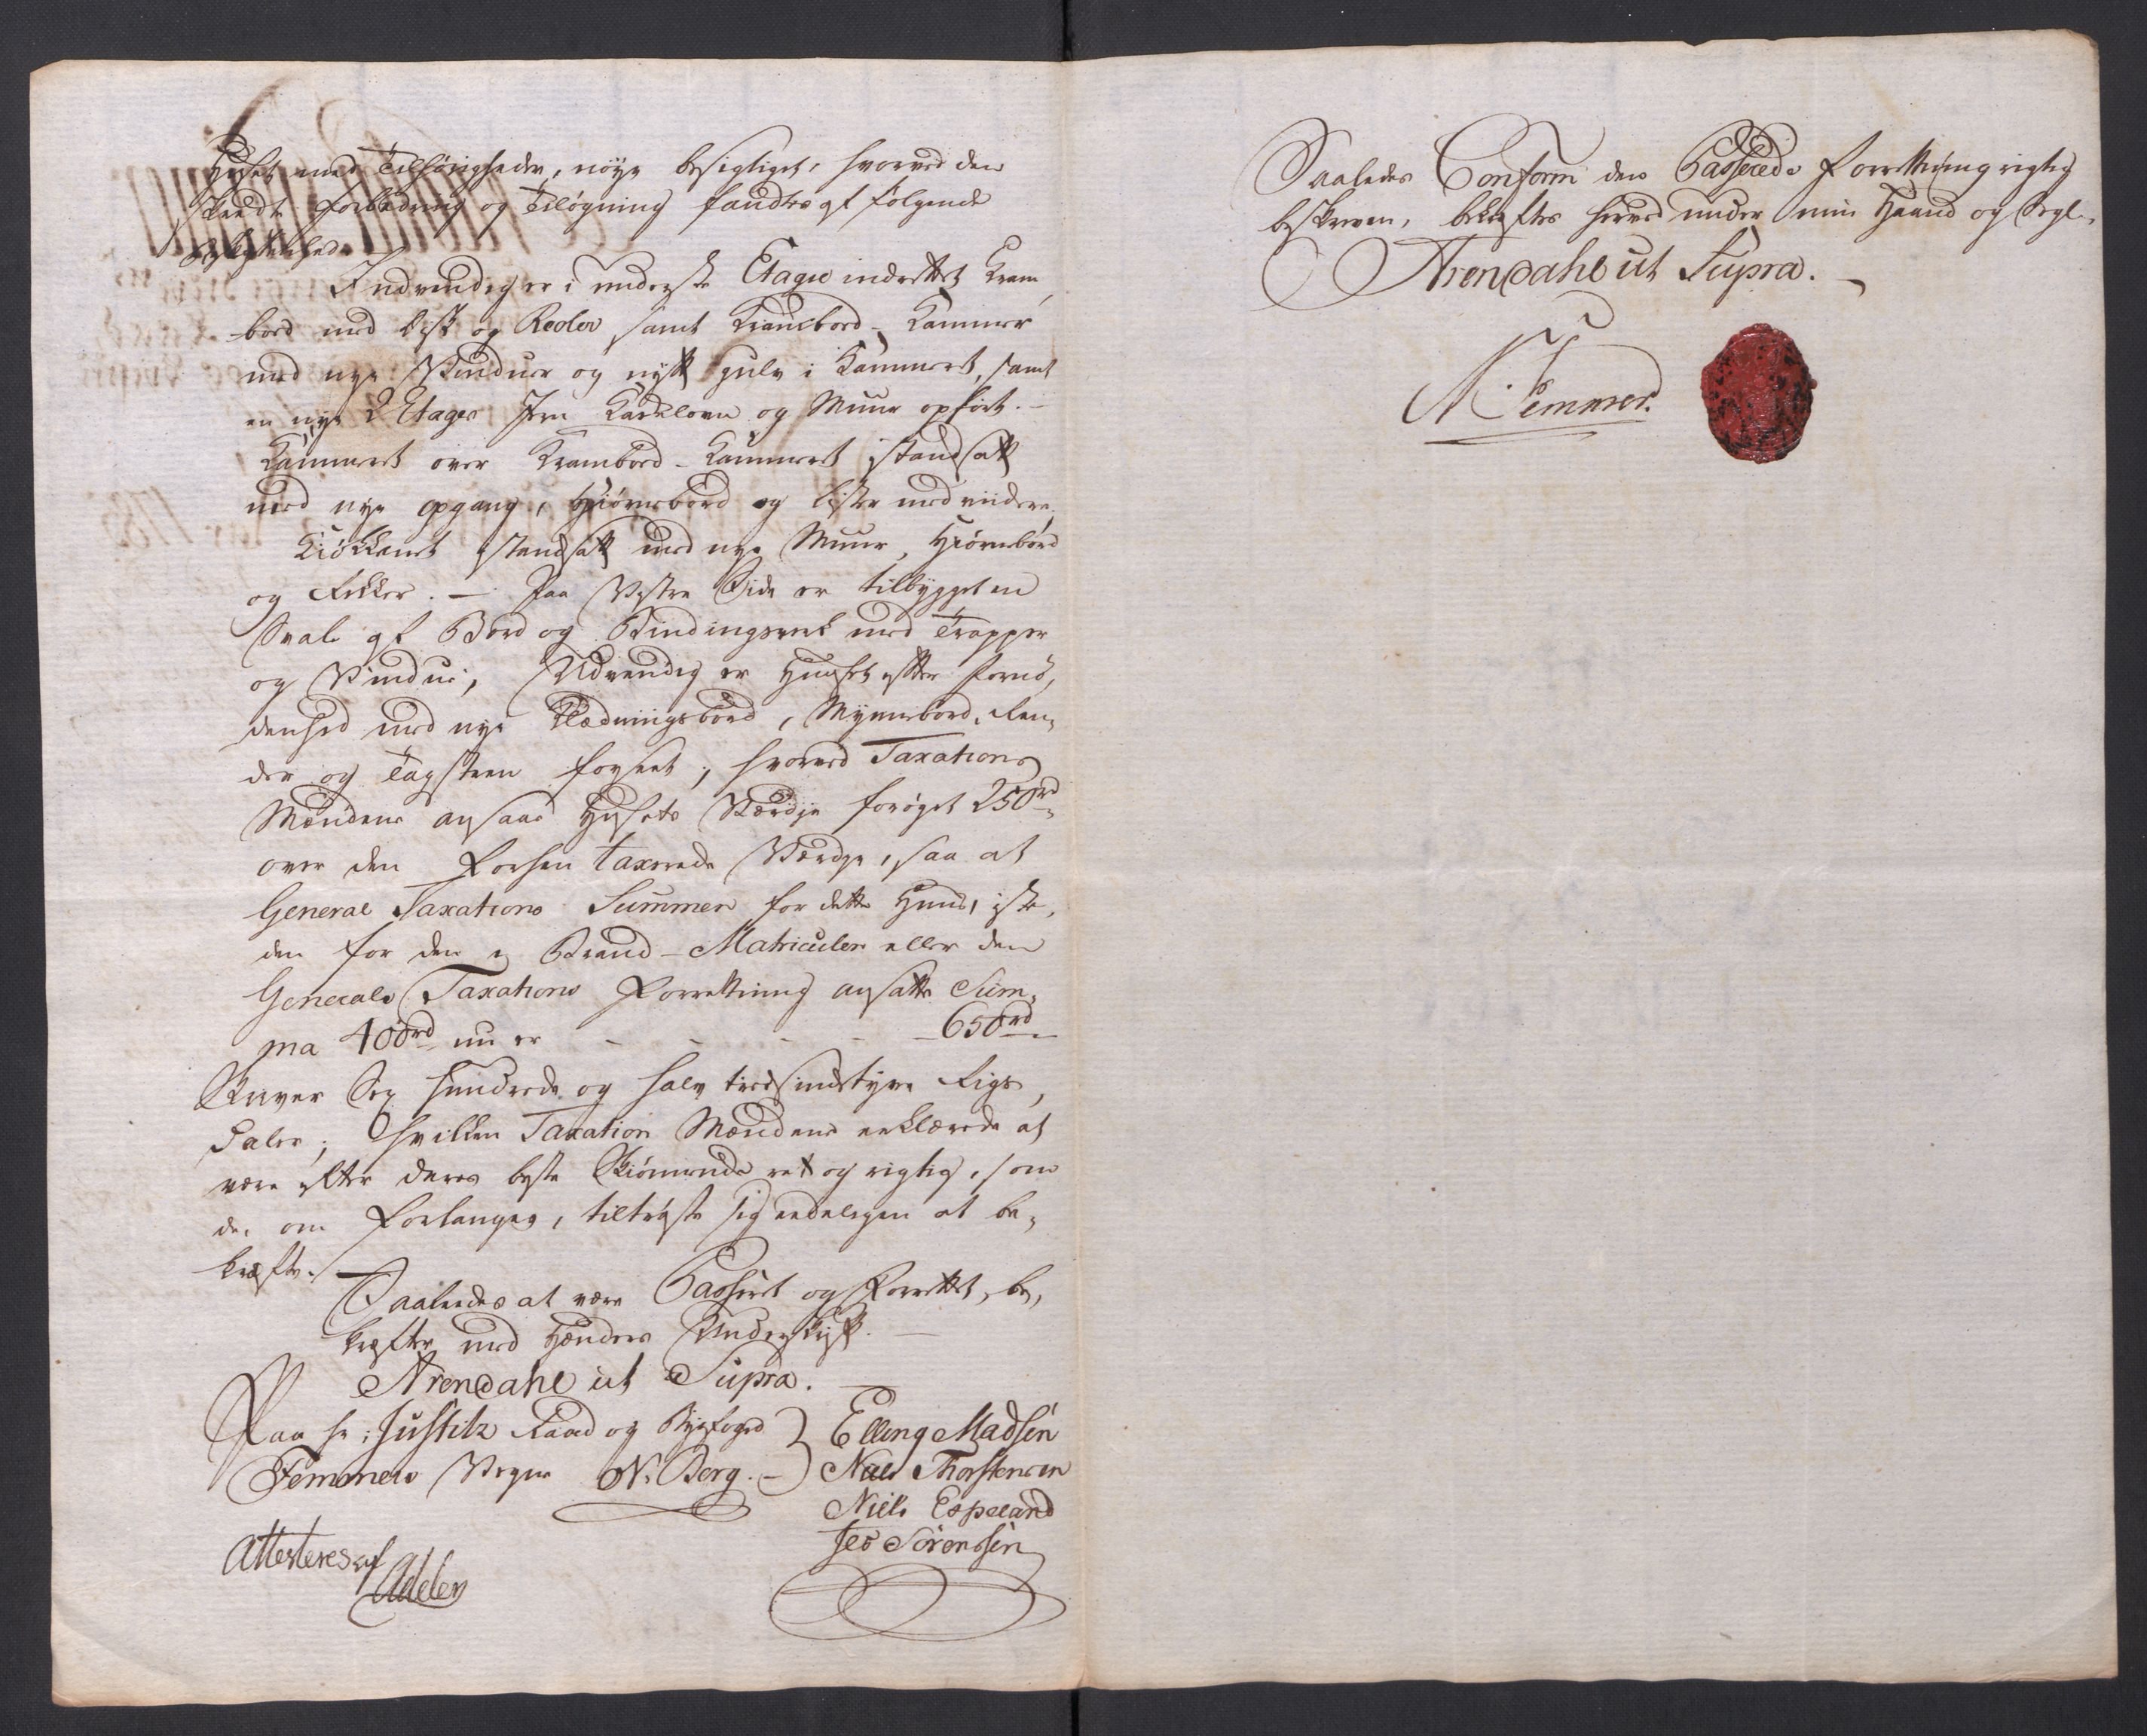 Huset med Tilhørigheder, nöye besigtiget, hvorved den
skeedte forbedring og Tiløgning fandtes af følgende
Beskaffenhed.
Indvendig er i underste Etage indrettet Kram,
bod med Disk og Reoler, samt Krambod-Kammer
med nye Vinduer og nytt gulv i Kammeret, samt
en nye 2 Etages Jern Kakelovn og Muur opført.-
Kammeret over Krambod-Kammeret istandsatt
med nye opgang, Hiørnebord og lister med viidere.
Kiøkkenet istandsatt med nye Muur, Hiørnebord
og Rekker. - Paa Westre Side er tilbygget en
Sval af Bord og Bindingsverk med Trapper
og Vindue, Udvendig er Huuset efter fornö,
denhed med nye Klædningsbord, Mynnebord, Ren,
der og Tagsteen forseet; hvorved Taxations
Mændene ansaae Husets Værdje forøget 250rd
over den Forhen taxerede Værdje, saa at
General Taxations Summen for dette Huus, iste,
den for den i Brand-Matriculen eller den
Generale Taxations Forretning ansatte Sum,
ma 400rd nu er - - - - - 650rd
Skriver Sex hundrede og halv tredsindstyve Rigs,
Daler; hvilken Taxation Mændene erklærede at
være efter deres beste Skiønnende ret og rigtig, som
de, om forlanges, tiltröste sig eedeligen at be,
kræfte. -
Saaledes at være Passeret og Forrettet, be,
kræftes med Hænders Underskrift. -
Arendahl ut Supra. -
Paa hr: Justitz Raad og Byefoged
Femmers Vegne N. Berg. -
Elling Madsen
Niels Thorstensen
Niels Espeland
Jes Sörensen
Attesteres af
Adeler
Saaledes Conform den Passerede Forretning rigtig
beskreven, bekræftes herved under min Haand og Segl.
Arendahl ut Supra. -
N Femmer.